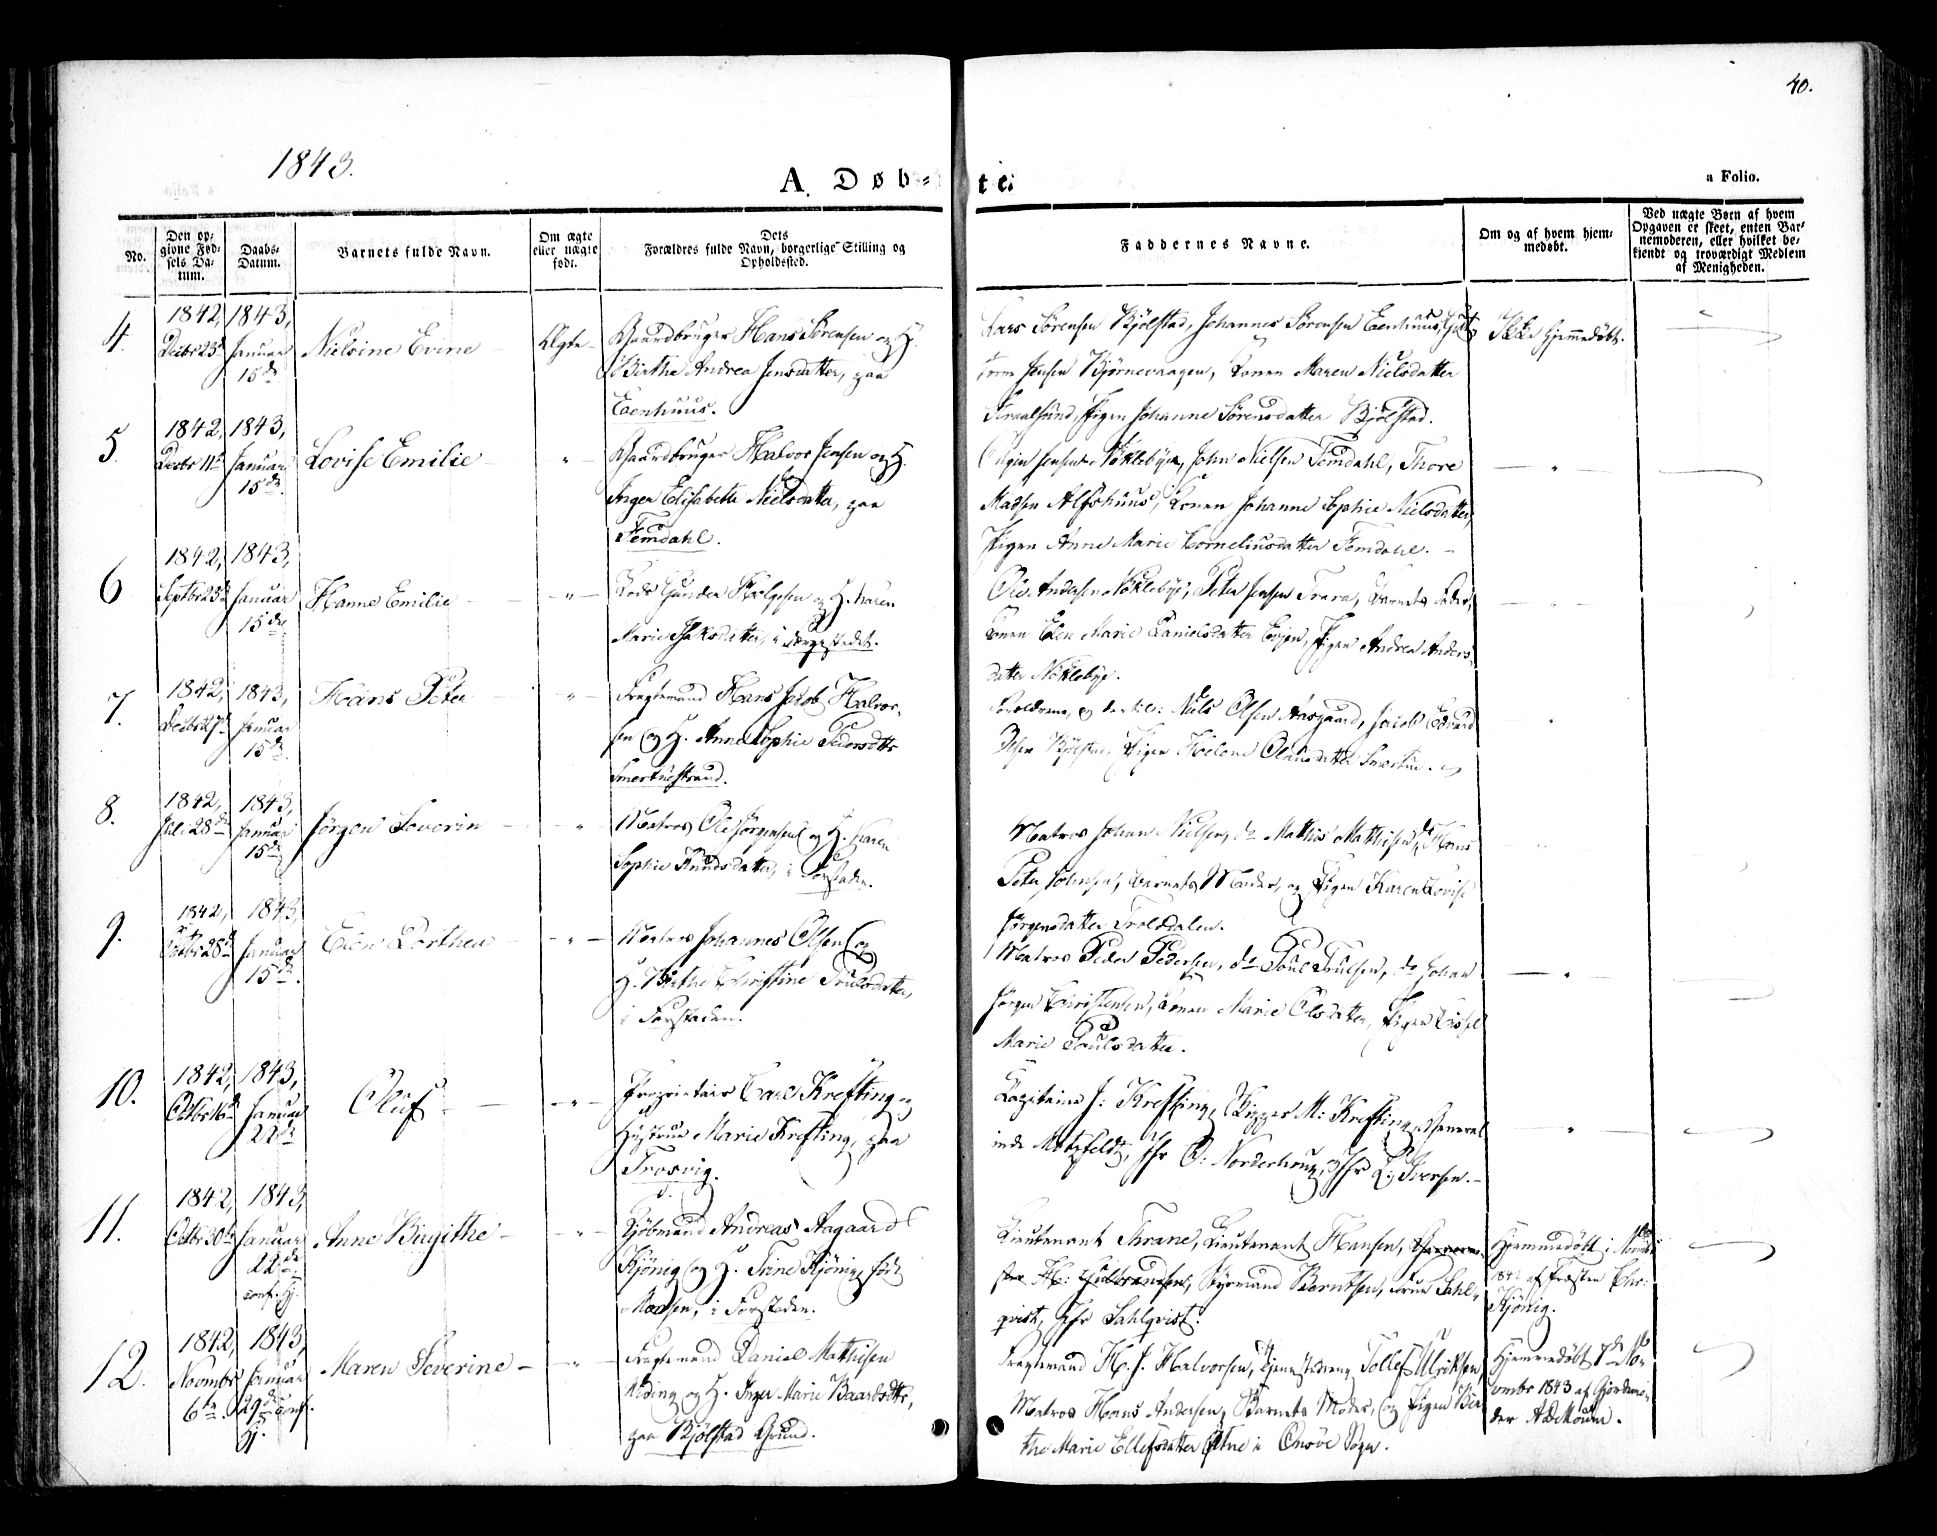 40.
1843.
A. Døb=
te.
a Folio.
No.
Den op=
givne Fød=
sels Da=
tum.
Daabs=
Datum.
Barnets fulde Navn.
Om ægte
eller uægte
født.
Dets
Forældres fulde Navn, borgerlige Stilling og
Opholdssted.
Faddernes Navne.
Om og af hvem hjem=
medøbt.
Ved uægte Børn af hvem
Opgaven er skeet, enten Bar=
nemoderen, eller hvilket be=
kjendt og troværdigt Medlem
af Menigheden.
4.
1842,
Decbr 23d
1843,
Januar
15de
Nielsine Evine
Ægte
Gaardbruger Hans Sørensen og H.
Birthe Andrea Jensdatter, paa
Eenhuus.
Lars Sørensen Bjølstad, Johannes Sørensen Eenhuus,
Jensen Bjørnevaagen, Konen Maren Nielsdatter
Pigen Johanne Sørensdatter Bjølstad.
Ikke Hjemmedøbt.
5.
1842,
Decbr 11te
1843,
Januar
15de
Lovise Emilie
"
Gaardbruger Halvor Jensen og H.
Inger Elisabeth Nielsdatter, paa
Femdahl.
Jensen Nøklebye, John Nielsen Femdahl, Thore
Madsen Alshuus, Konen Johanne Sophie Nielsdatter,
Pigen Anne Marie Corneliusdatter Femdahl.
"
6
1842,
Septbr 23d
1843,
Januar
15de
Hanne Emilie
"
Lods Gunder Helgesen og H. Karen
Marie Isaksdatter, i
Ole Andersen Nøklebye, Peter Jensen Trara, Barnets Fader,
Konen Elen Marie Danielsdatter Evjen, Pigen Andrea Anders=
datter Nøklebye.
"
7.
1842,
Decbr 27d
1843,
Januar
15de
Hans Peter
"
Fragtemand Hans Jacob Halvor=
sen og H. Anne Sophie Pedersdtr
Smertuestrand.
Forældrene, og dertil: Niels Olsen Aasgaard, Jacob Edvard
Olsen Bjølstad, Pigen Helene Olausdatter Smertu.
"
8.
1842,
Juli 28de
1843,
Januar
15de
Jørgen Severin
"
Matros Ole Jørgensen og H. Karen
Sophie Knudsdatter, i Forstaden.
Matros Johan Nielsen, do Mathis Mathisen, do Hans
Peter Johnsen, Barnets Moder, og Pigen Karen Lovise
Jørgensdatter Trolddalen.
"
9.
1842,
Octbr 28d
1843,
Januar
15de.
Elen Dorthea
"
Matros Johannes Olsen og
H. Birthe Christine Truelsdatter,
i Forstaden.
Matros Peder Pedersen, do Poul Poulsen, do Johan
Jørgen Christensen, Konen Marie Olsdatter, Pigen
Marie Poulsdatter.
"
10.
1842,
Octbr 16de
1843,
Januar
22de
Oluf
"
Proprietair Carl Krefting og
Hustrue Marie Krefting, paa
Trosvig.
Capitaine J: Krefting, M: Krefting, General
inde Motzfeldt, Jfr C: Norderhoug, Jfr L: Iversen.
"
11.
1842,
Octbr 30te
1843,
Januar
22de
conf. Hj.
Anne Birgithe
"
Kjøbmand Andreas Aagaard
Kjønig og H. Trine Kjønig, født
Madsen, i Forstaden.
Lieutenant Thrane, Lieutenant Hansen,
H: Gulbrandsen, Styrmand Berntsen, Frue Sahl=
qvist, Jfr Sahlqvist.
Hjemmedøbt i Novmbr
1842 af Præsten Chr:
Kjönig.
12.
1842,
Novmbr
6te
1843,
Januar
29de conf.
Hj.
Maren Severine
"
Fragtemand Daniel Mathisen
og H. Inger Marie
paa Bjølstad Grund.
Fragtemand H. J. Halvorsen, Tjenestedreng Tollef Ulriksen,
Matros Hans Andersen, Barnets Moder, og Pigen Ber
the Marie Ellefsdatter i Onsöe Sogn.
Hjemmedøbt 7de No=
vmbr 1843 af Gjordemo=
der